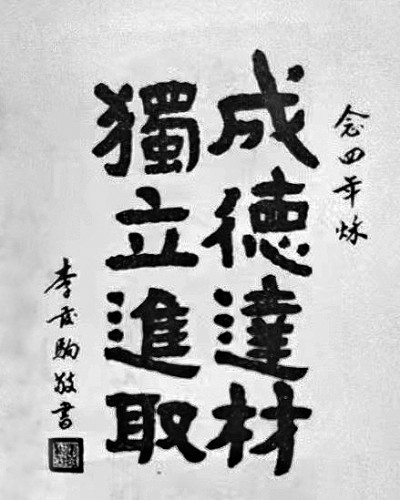 念四年秌
成德達材
獨立進取
李登駒敬書